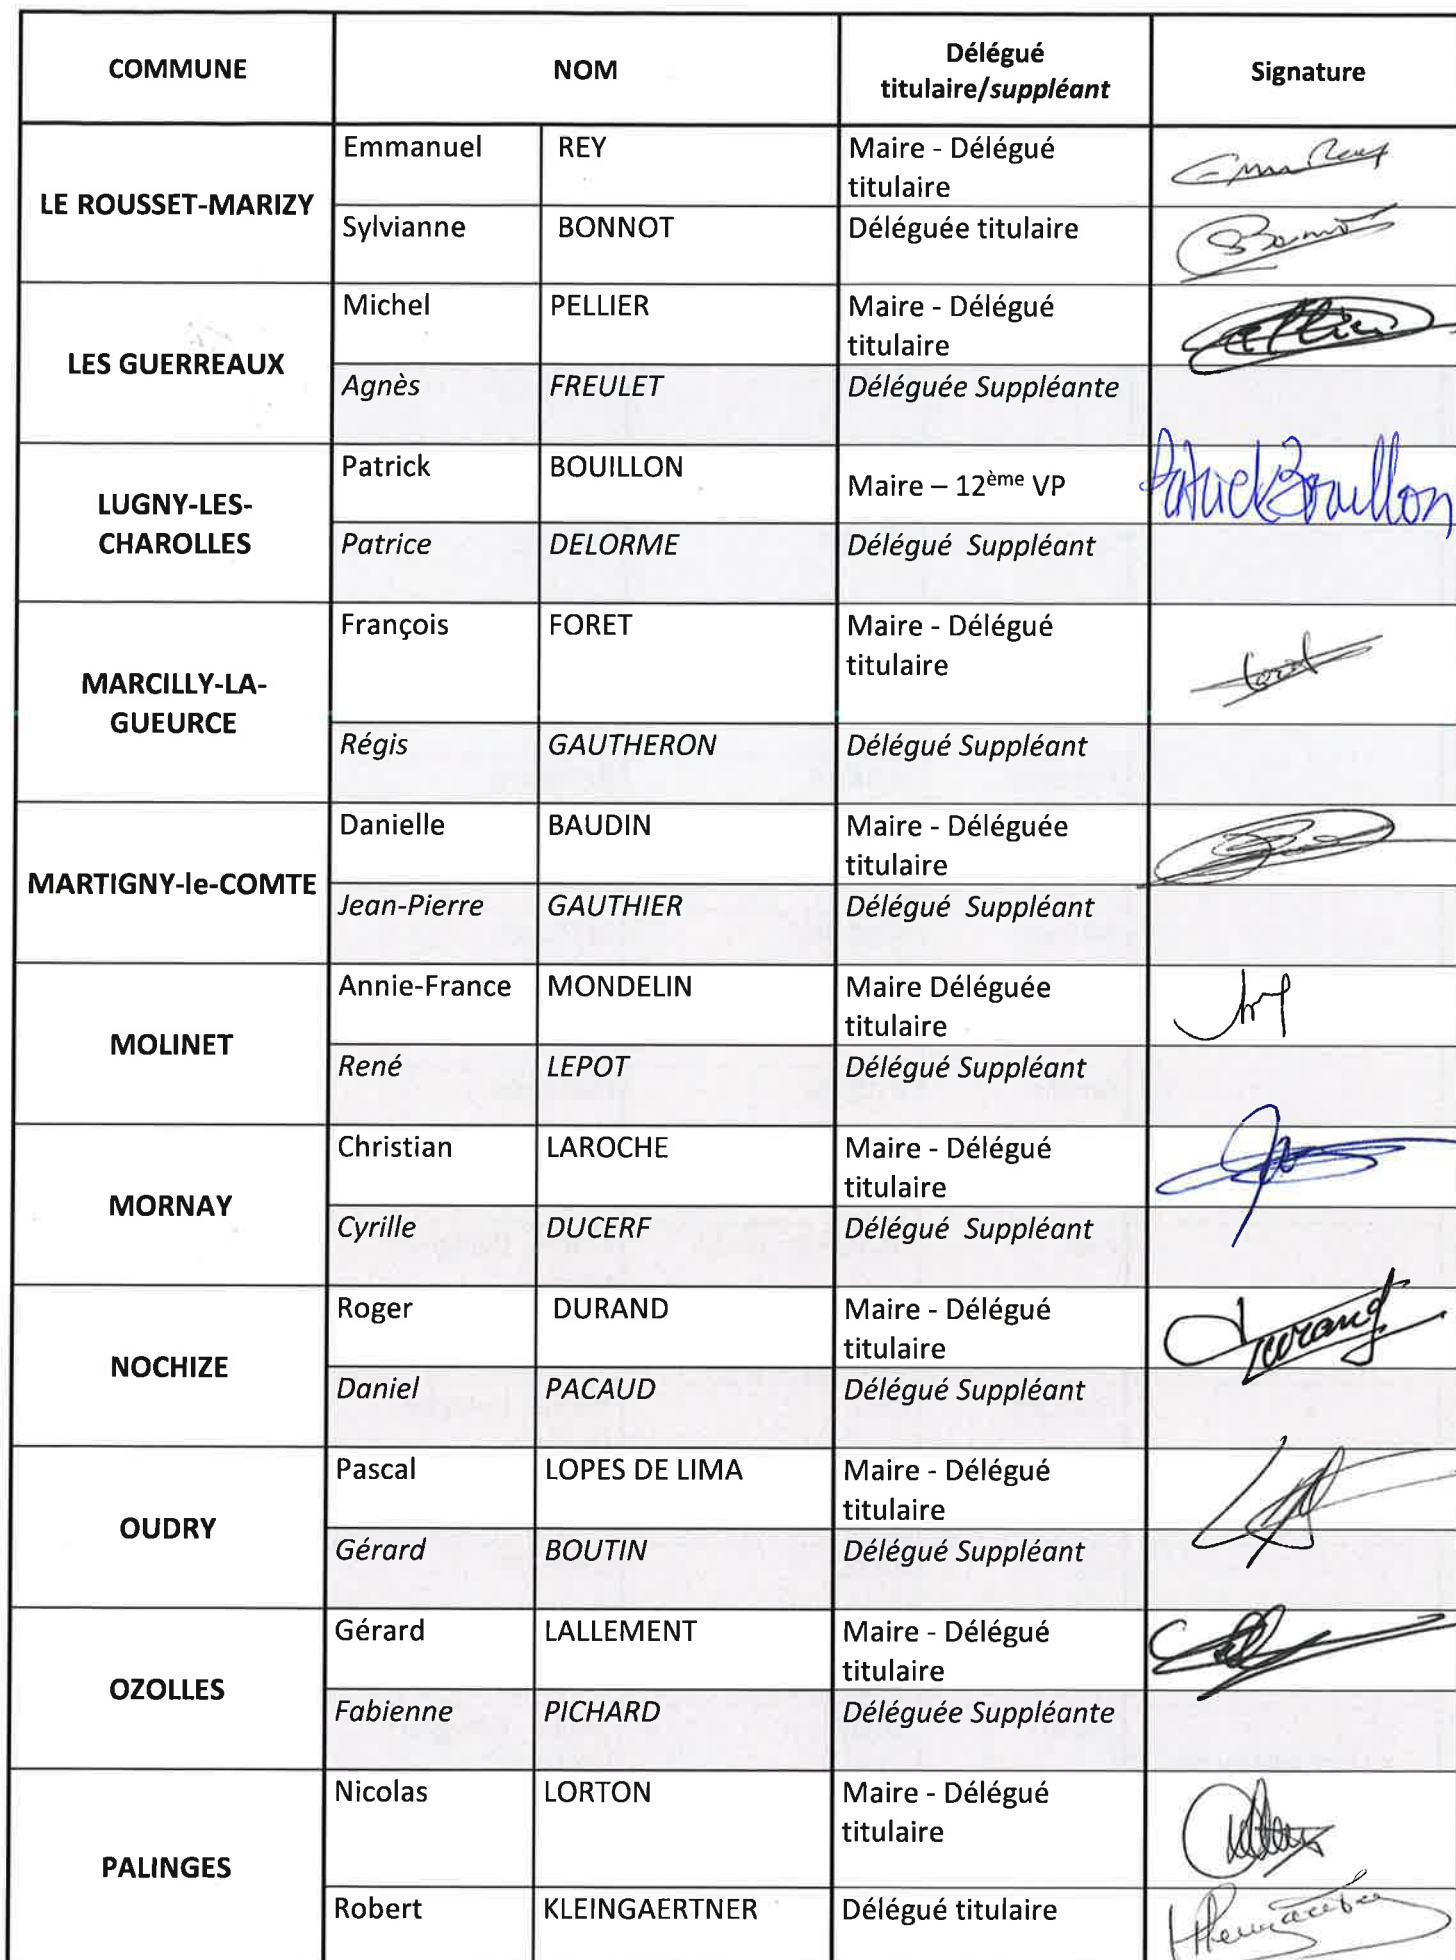 COMMUNE NOM Délégué titulaire/suppléant Signature
LE ROUSSET-MARIZY
Emmanuel REY Maire - Délégué titulaire
Sylvianne BONNOT Déléguée titulaire
LES GUERREAUX
Michel PELLIER Maire - Délégué titulaire
Agnès FREULET Déléguée Suppléante
LUGNY-LES-
CHAROLLES
Patrick BOUILLON Maire – 12ème VP Patrick Bouillon
Patrice DELORME Délégué Suppléant
MARCILLY-LA-
GUEURCE
François FORET Maire - Délégué titulaire
Régis GAUTHERON Délégué Suppléant
MARTIGNY-le-COMTE
Danielle BAUDIN Maire - Déléguée titulaire
Jean-Pierre GAUTHIER Délégué Suppléant
MOLINET
Annie-France MONDELIN Maire Déléguée titulaire
René LEPOT Délégué Suppléant
MORNAY
Christian LAROCHE Maire - Délégué titulaire
Cyrille DUCERF Délégué Suppléant
NOCHIZE
Roger DURAND Maire - Délégué titulaire Durand
Daniel PACAUD Délégué Suppléant
OUDRY
Pascal LOPES DE LIMA Maire - Délégué titulaire
Gérard BOUTIN Délégué Suppléant
OZOLLES
Gérard LALLEMENT Maire - Délégué titulaire
Fabienne PICHARD Déléguée Suppléante
PALINGES
Nicolas LORTON Maire - Délégué titulaire
Robert KLEINGAERTNER Délégué titulaire